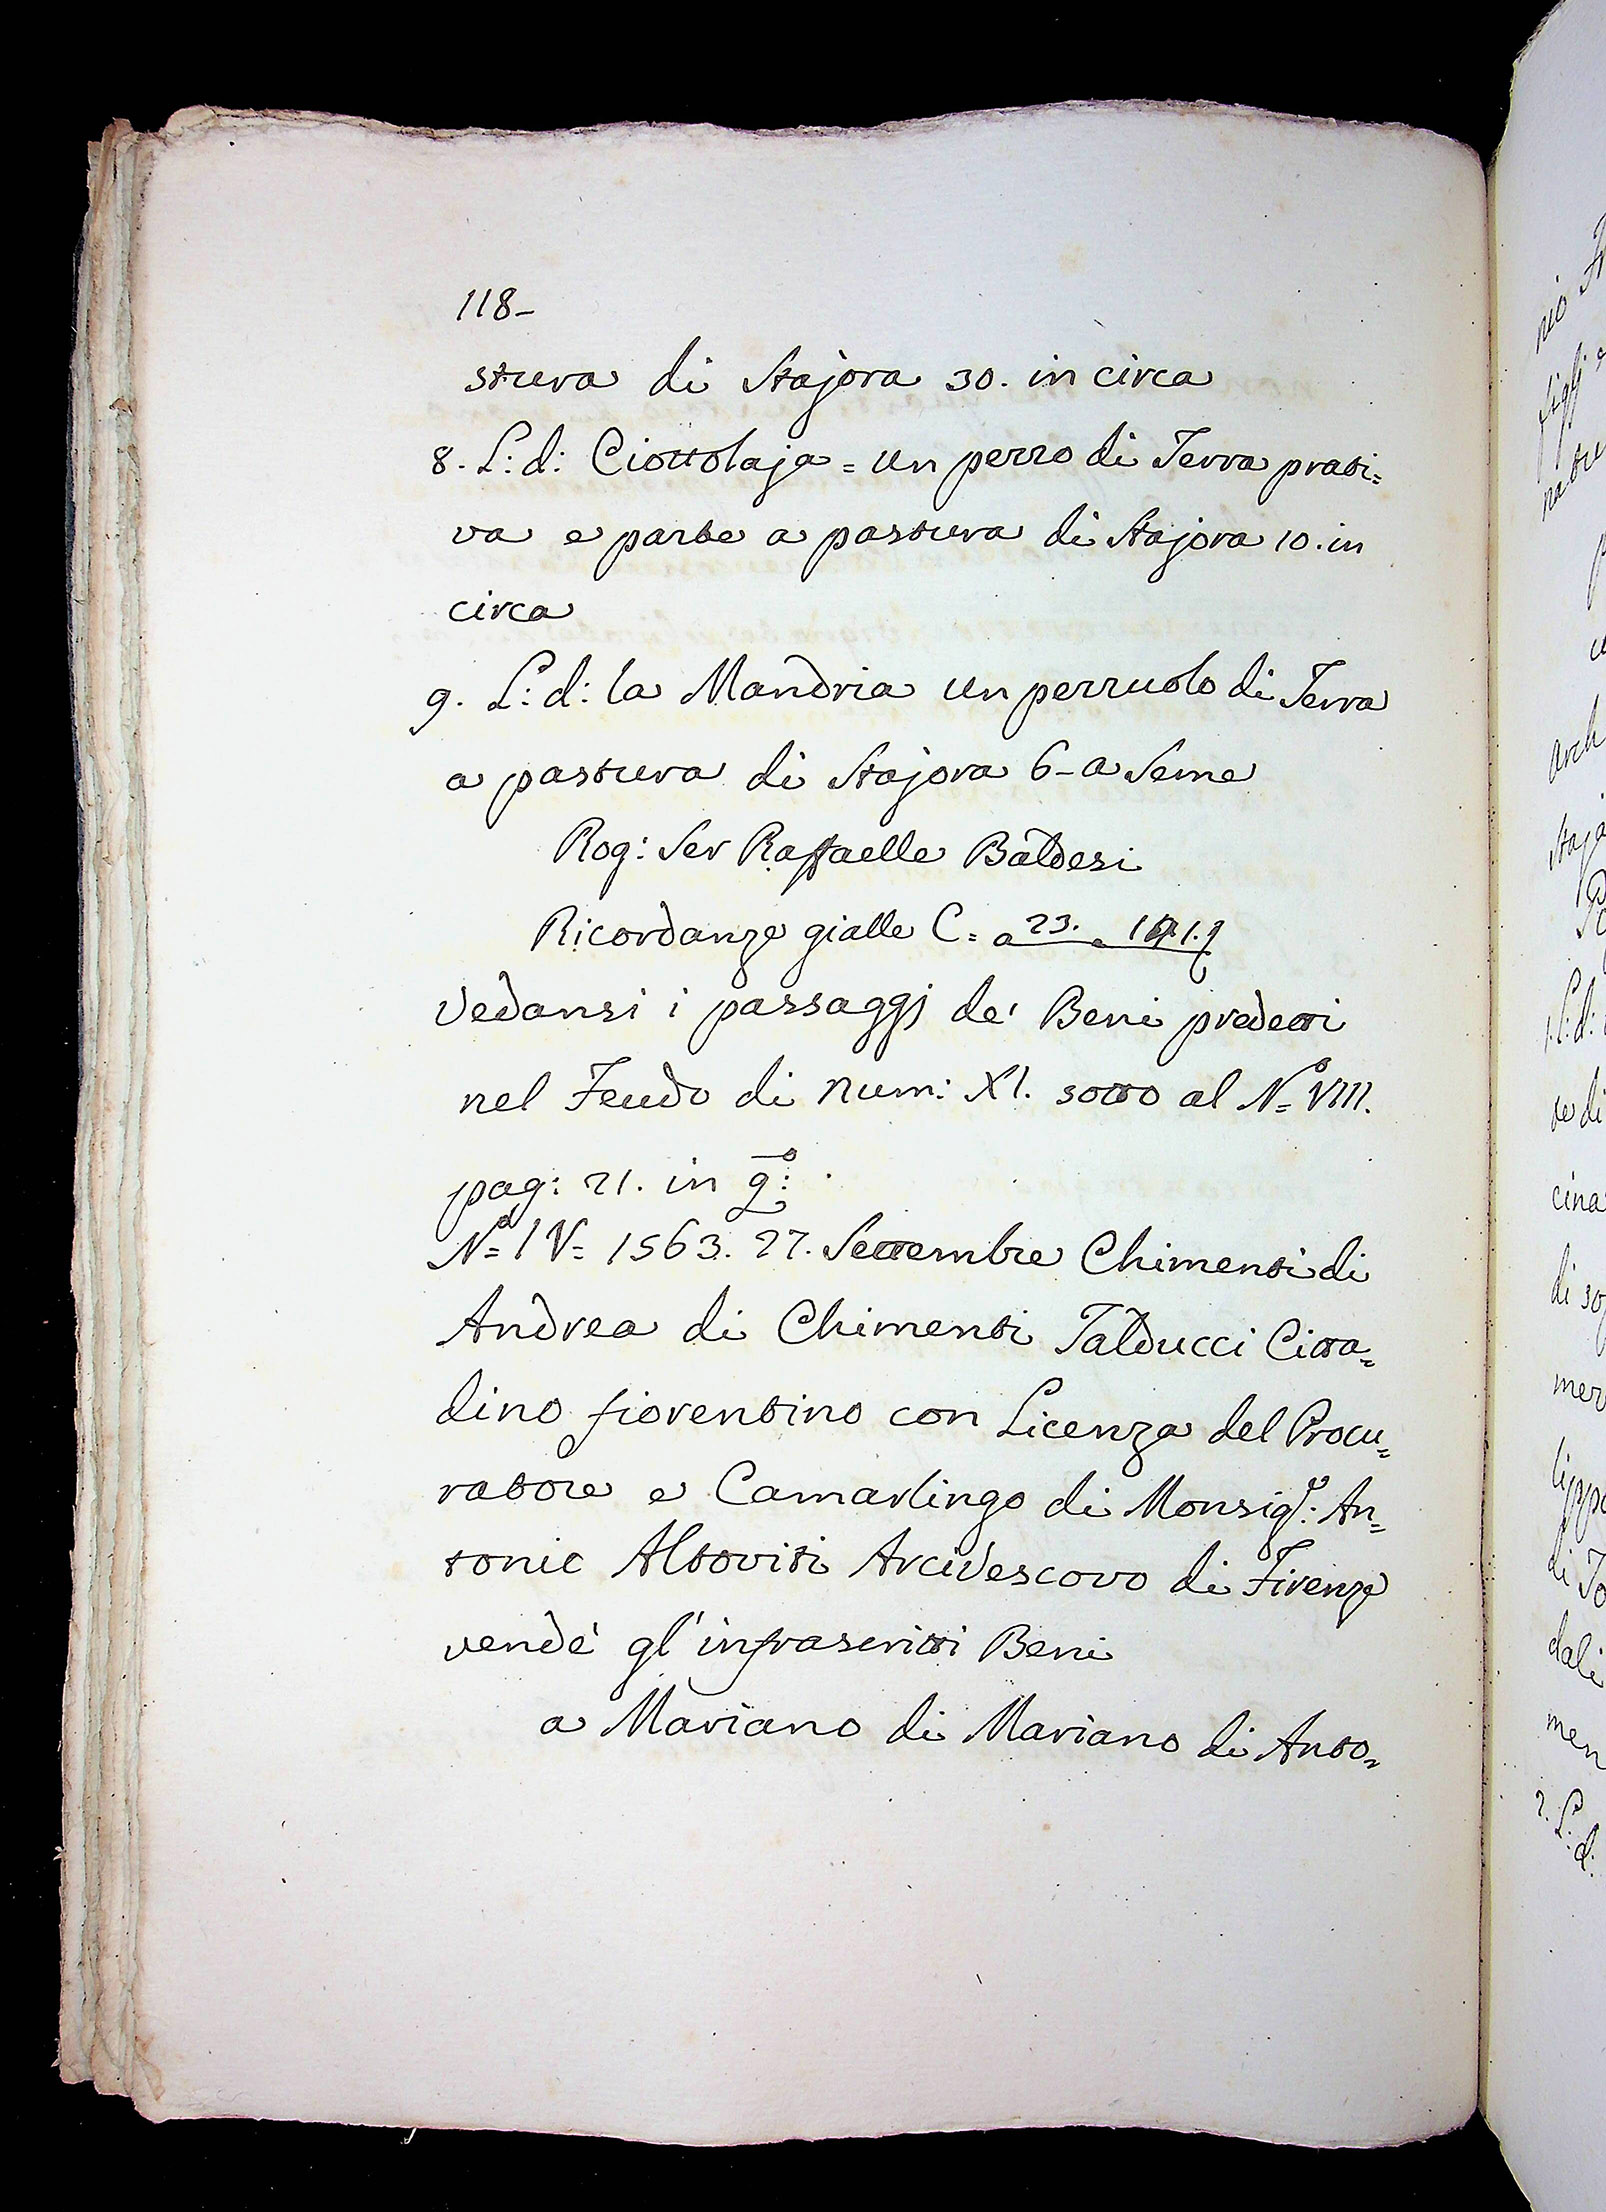 118-
stura di Stajora 30. in circa
8. L: d: Ciottolaja = un pezzo di Terra prati=
va e parte a pastura di Stajora 10. in
circa
9. L: d: la Mandria un pezzuolo di Terra
a pastura di Stajora 6- a Seme
Rog: Ser Raffaelle Baldesi
Ricordanze gialle C= a 23.
Vedansi i passaggj de' Beni predetti
nel Feudo di num: XI. sotto al N.º VIII.
pag: 21. in q:º
N.º IV= 1563. 27. Settembre Chimenti di
Andrea di Chimenti Talducci Citta=
dino fiorentino con Licenza del Procu=
ratore e Camarlingo di Monsig.r: An=
tonio Altoviti Arcivescovo di Firenze
vendè gl'infrascritti Beni
a Mariano di Mariano di Anto=